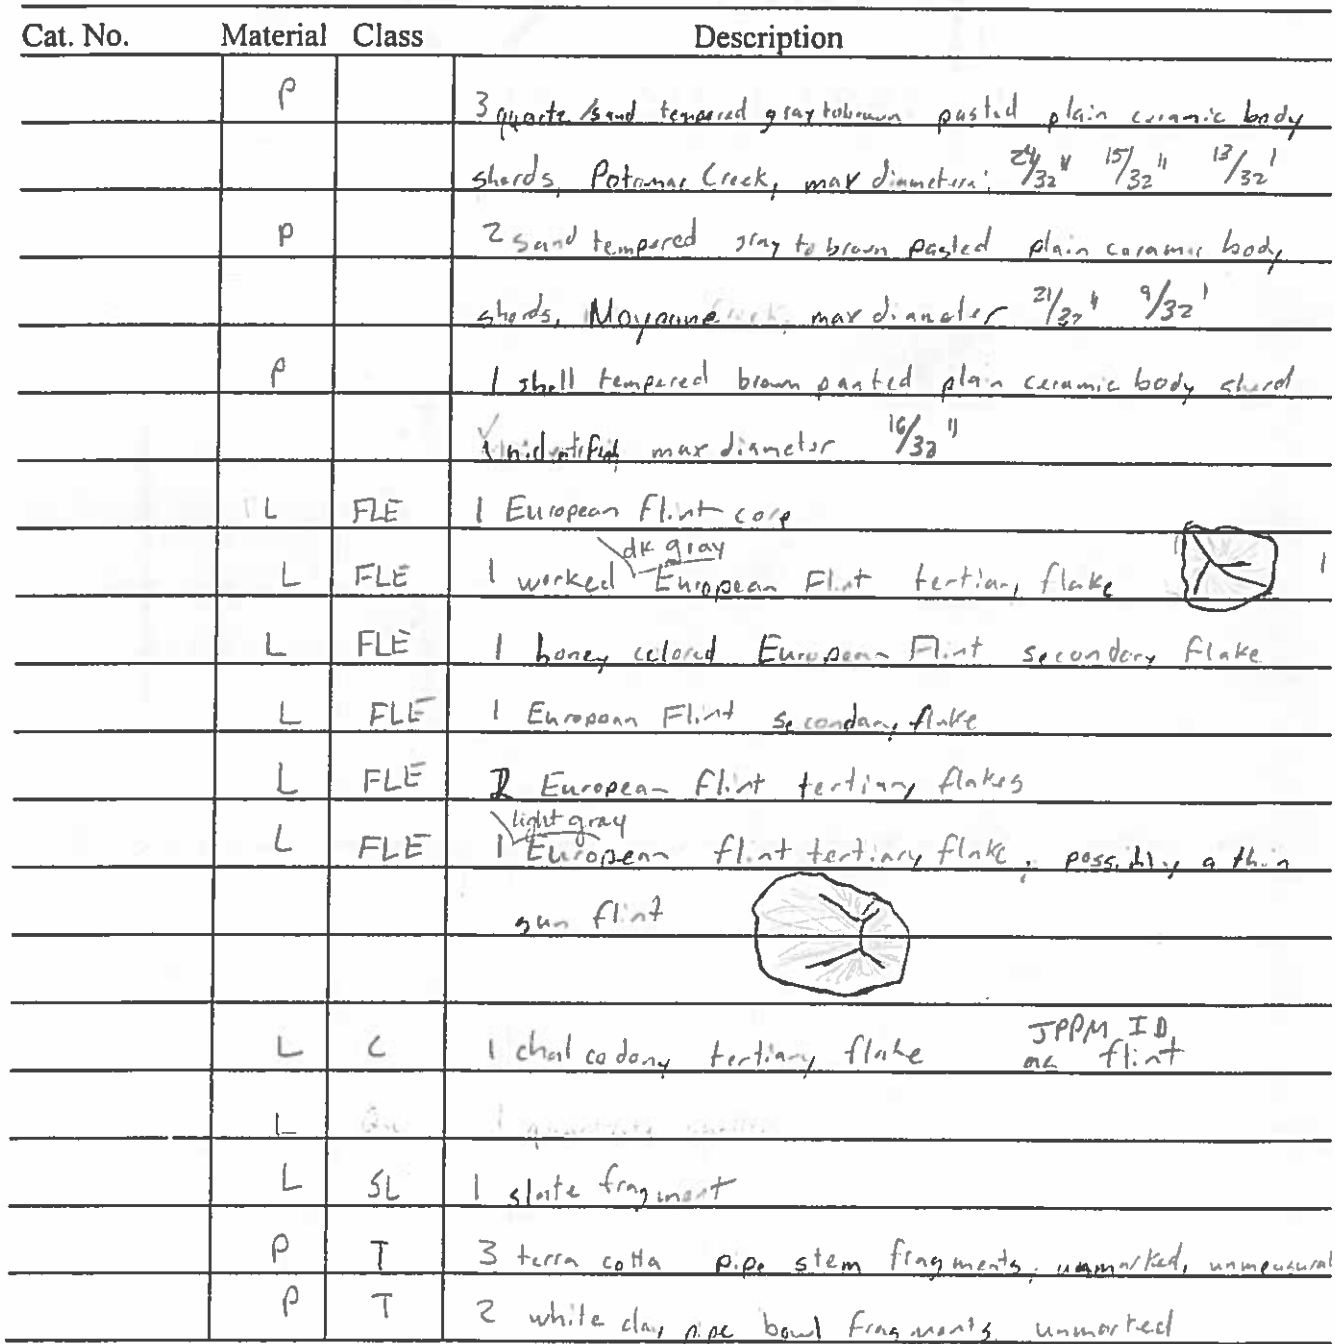 Cat. No. Material Class Description
P 3 quartz/sand tempered gray to brown pasted plain ceramic body
sherds, Potomac Creek, max diameters: 24/32" 15/32" 13/32"
P 2 sand tempered gray to brown pasted plain ceramic body
sherds, Moyaone max diameter 21/32" 9/32"
P 1 shell tempered brown pasted plain ceramic body sherd
max diameter 16/32"
L FLE 1 European Flint core
dk gray
L FLE 1 worked European Flint tertiary flake
L FLE 1 honey colored European Flint secondary flake
L FLE 1 European Flint secondary flake
L FLE European flint tertiary flakes
light gray
L FLE 1 European flint tertiary flake, possibly a thin
gun flint
JPPM ID
L C 1 chalcedony tertiary flake flint
L
L SL 1 slate fragment
P T 3 terra cotta pipe stem fragments, unmarked,
P T 2 white clay pipe bowl fragments unmarked